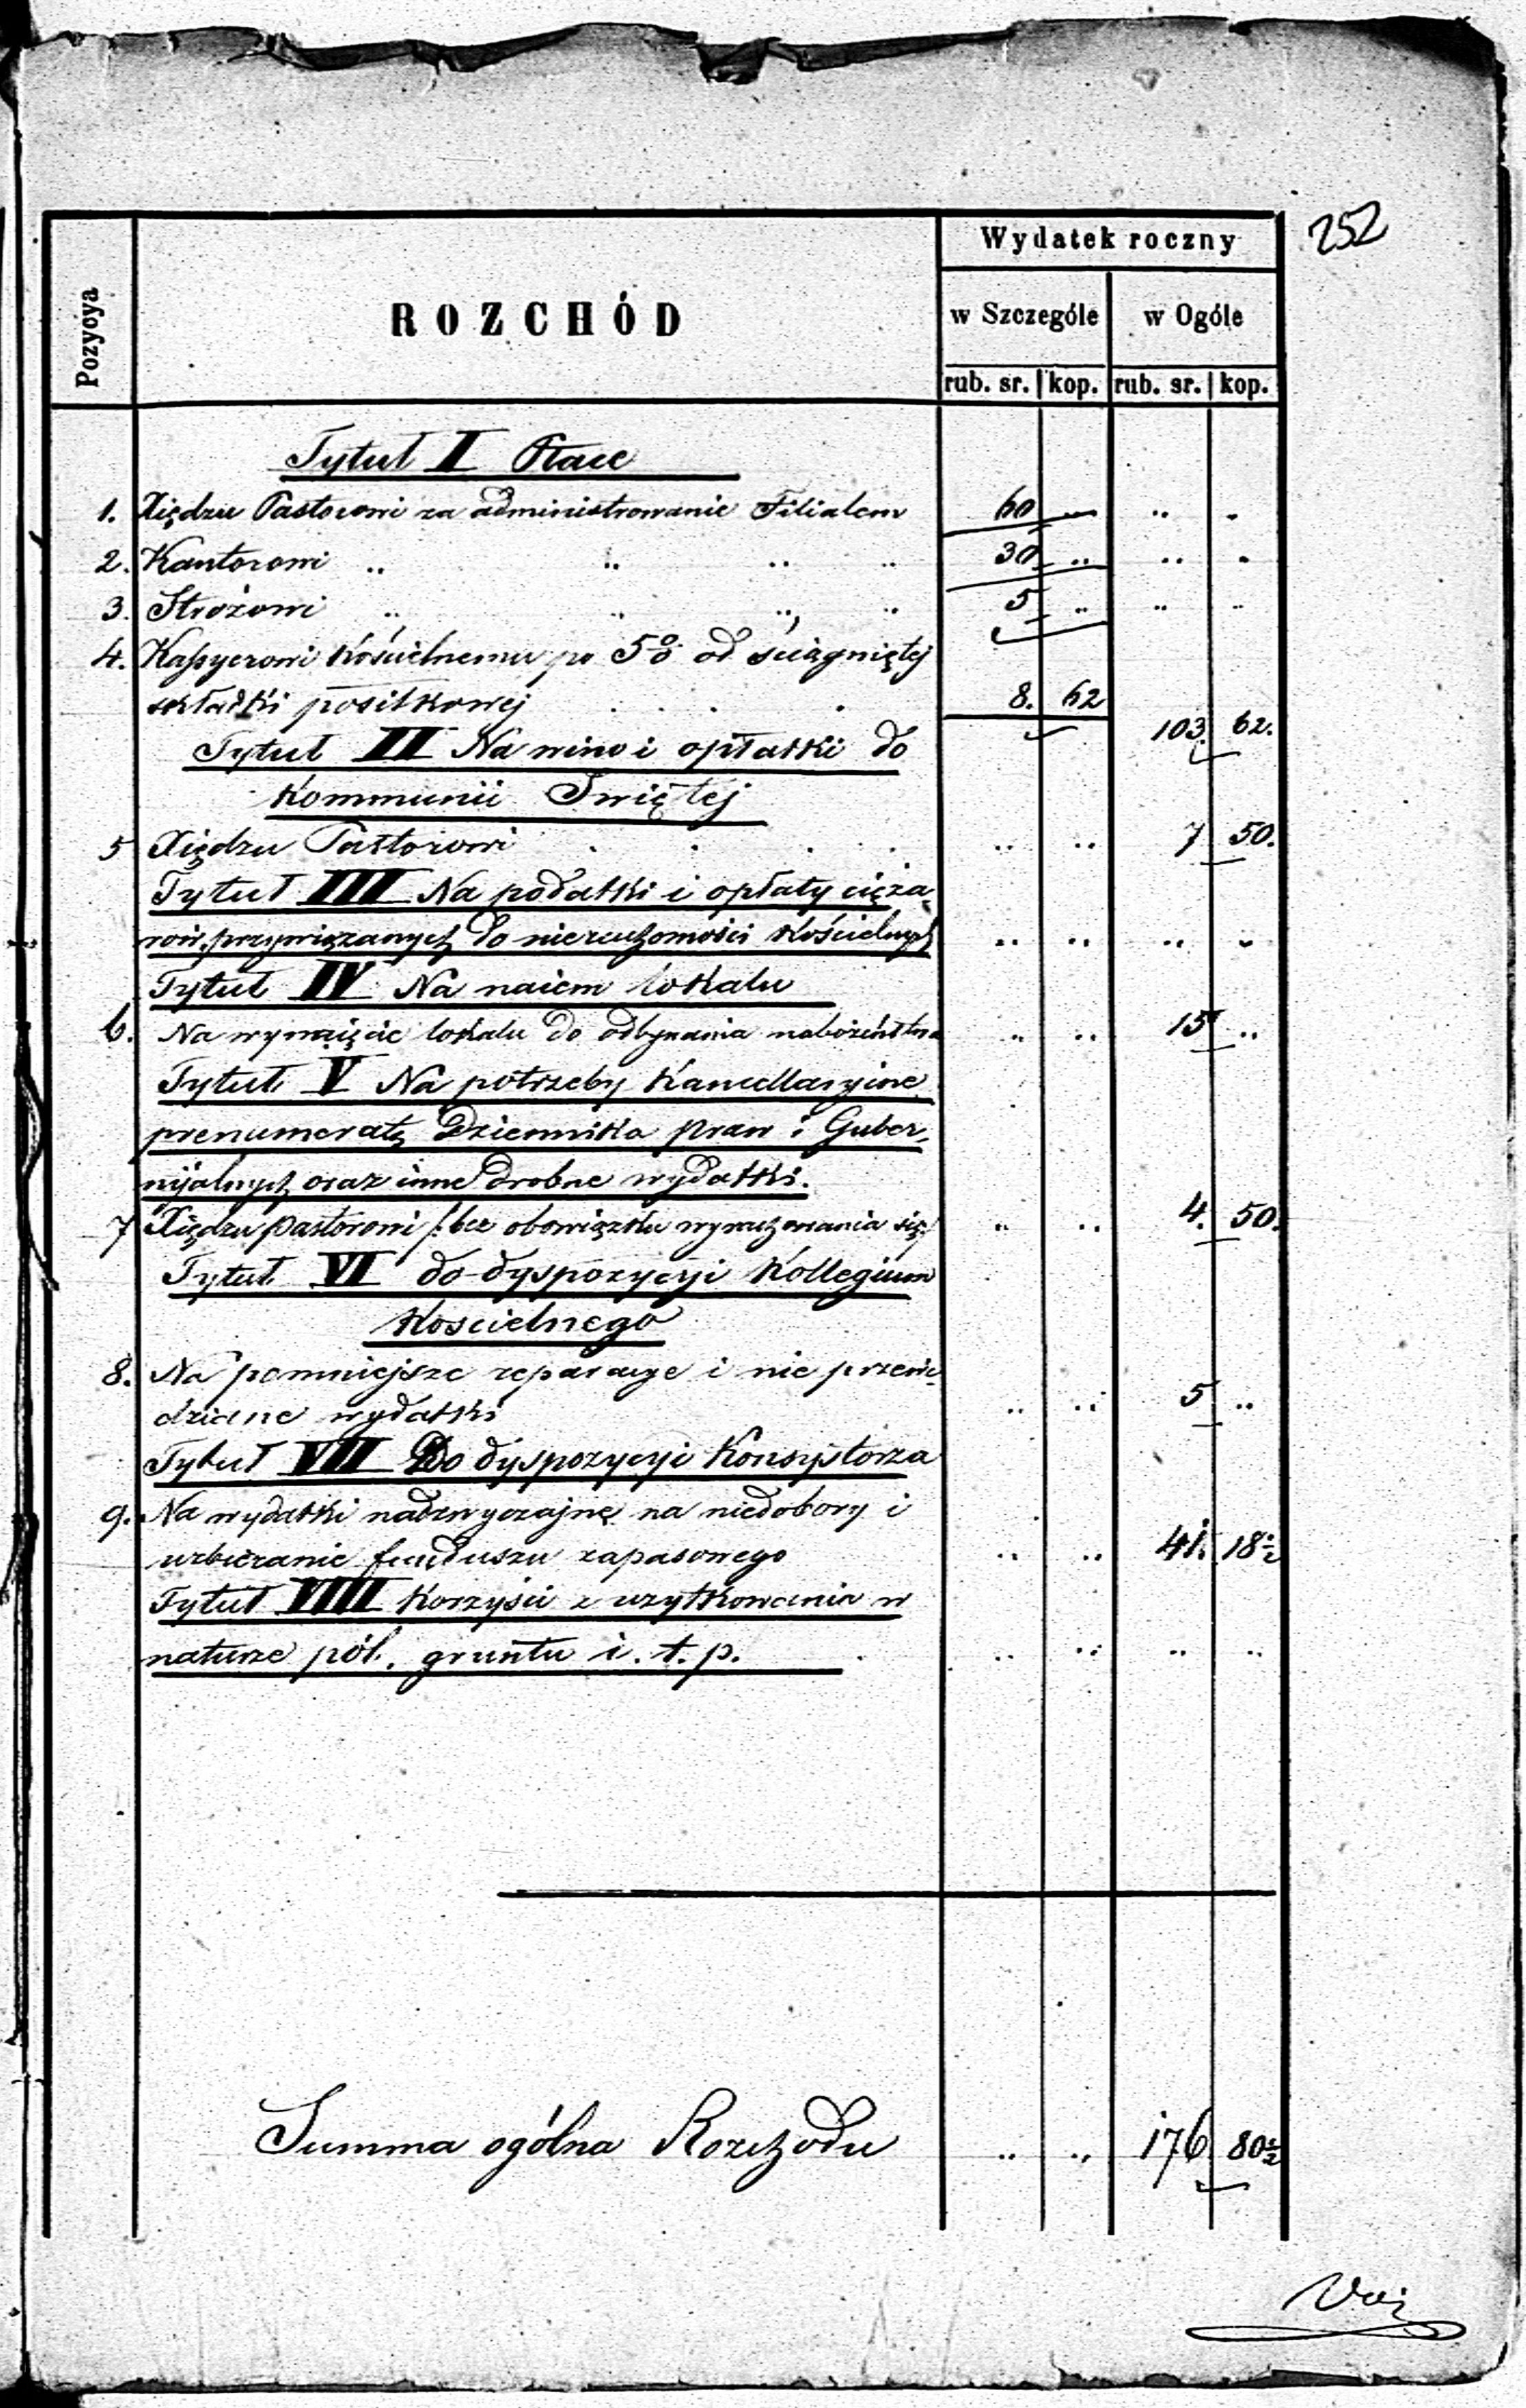 252
Pozycya
ROZCHÓD
Wydatek roczny
w Szczególe w Ogóle
rub. sr. kop. rub. sr. kop.
Tytuł I Płace
1. Xiędzu Pastorowi za administrowanie Filialem 60 „ „ „
2. Kantorowi „ „ „ „ 30 „ „ „
3. Stróżowi „ „ „ „ 5 „ „ „
4. Kassyerowi Kościelnemu po 5% od ściągniętej
składki posiłkowej . . . 8. 62 103 62.
Tytuł II Na wino i opłatki do
Kommunii Świętej
5 Xiędzu Pastorowi . . . . . „ „ 7 50.
Tytuł III Na podatki i opłaty cięża-
rów, przywiązanych do nieruchomości Kościelnych „ „ „ „
Tytuł IV Na naiem lokalu
6. Na wynaięcie lokalu do odbywania nabożeństwa „ „ 15 „
Tytuł V Na potrzeby Kancellaryjne
prenumeratę Dziennika praw i Guber-
nijalnych oraz inne drobne wydatki.
7 Xiędzu pastorowi /: bez obowiązku wyrachowania się :/ „ „ 4. 50.
Tytuł VI do dyspozycyi Kollegium
Kościelnego
8. Na pomniejsze reparacye i nie przewi-
dziane wydatki „ „ 5 „
Tytuł VII Do dyspozycyi Konsystorza
9. Na wydatki nadzwyczajne na niedobory i
uzbieranie funduszu zapasowego „ „ 41. 18½
Tytuł VIII Korzyści z użytkowania w
naturze pól, gruntu i. t. p. . „ „ „ „
Summa ogólna Rozchodu „ „ 176 80½